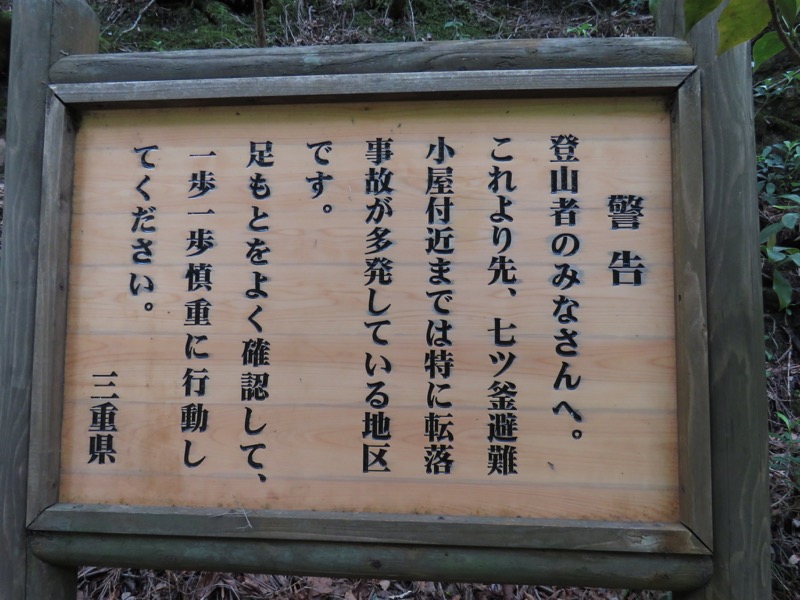 警告
登山者のみなさんへ。
これより先、七ツ釜避難
小屋付近までは特に転落
事故が多発している地区
です。
足もとをよく確認して、
一歩一歩慎重に行動し
てください。
三重県